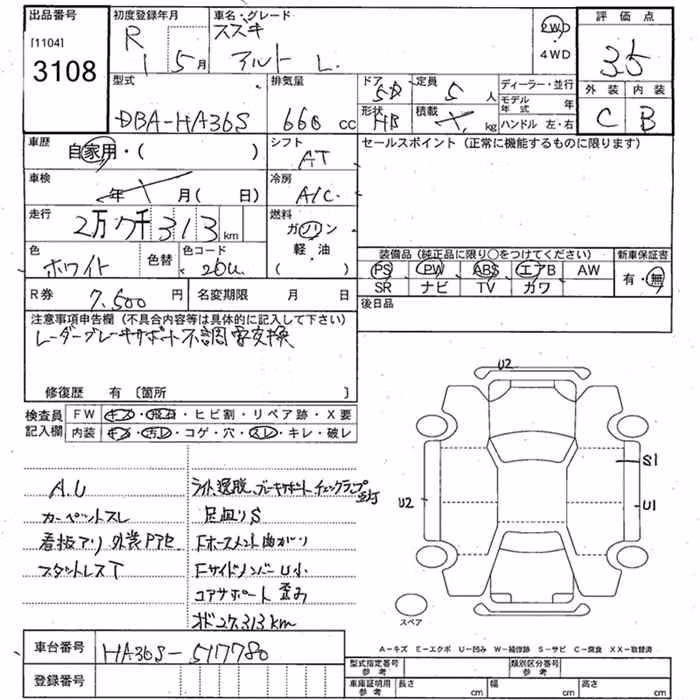 出品番号
[1104]
3108
初度登録年月
R 1 5月
車名・グレード
スズキ
アルト L
2WD
4WD
評価点
3.5
外装 内装
C B
型式
DBA-HA36S
排気量
660 cc
ドア
5D
定員
5 人
形状
HB
積載
kg
ディーラー・並行
モデル年式 年
ハンドル 左・右
車歴
自家用・( )
シフト
AT
セールスポイント (正常に機能するものに限ります)
車検
年 月( 日)
冷房
A/C
走行
2万7千313 km
燃料
ガソリン
軽・油
( )
色
ホワイト
色替
色コード
26U
装備品 (純正品に限り○をつけてください)
PS PW ABS エアB AW
SR ナビ TV カワ
新車保証書
有・無
R券
7,500 円
名変期限 月 日
後日品
注意事項申告欄 (不具合内容等は具体的に記入して下さい)
レーダーブレーキサポート不調 要交換
修復歴 有 〔箇所 〕
検査員記入欄
FW キズ・飛石・ヒビ割・リペア跡・X要
内装 キズ・汚レ・コゲ・穴・スレ・キレ・破レ
A.U
カーペットスレ
看板アリ 外装
スタットレスT
ブレーキサポートチェックランプ点灯
足廻りS
曲がり
FサイドメンバーU小
コアサポート 歪み
27,313km
U2
U2
S1
U1
スペア
A-キズ E-エクボ U-凹み W-補修跡 S-サビ C-腐食 XX-取替済
車台番号
HA36S-517780
登録番号
型式指定番号
参考
類別区分番号
参考
車庫証明用
参考
長さ cm
幅 cm
高さ cm